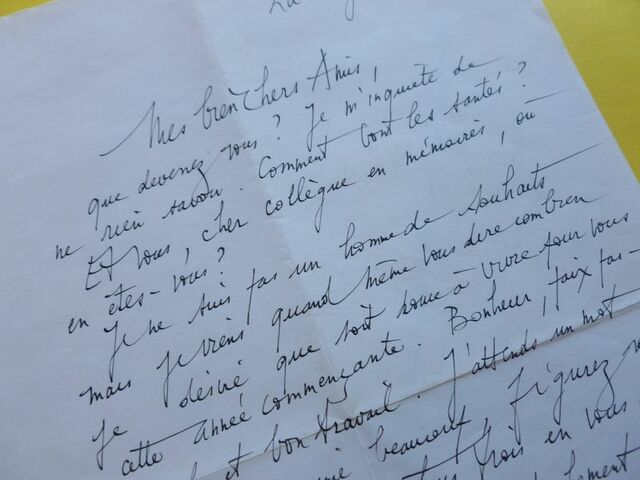 La
Mes bien Chers Amis,
que devenez vous? Je m'inquiète de
ne rien savoir. Comment vont les santés?
Et vous, cher collègue en mémoires, où
en êtes-vous?
Je ne suis pas un homme de souhaits
mais je viens quand même vous dire combien
je désire que soit douce à vivre pour vous
cette année commençante. Bonheur, paix
et bon travail. J'attends un mot
beaucoup, figurez
trois en vous